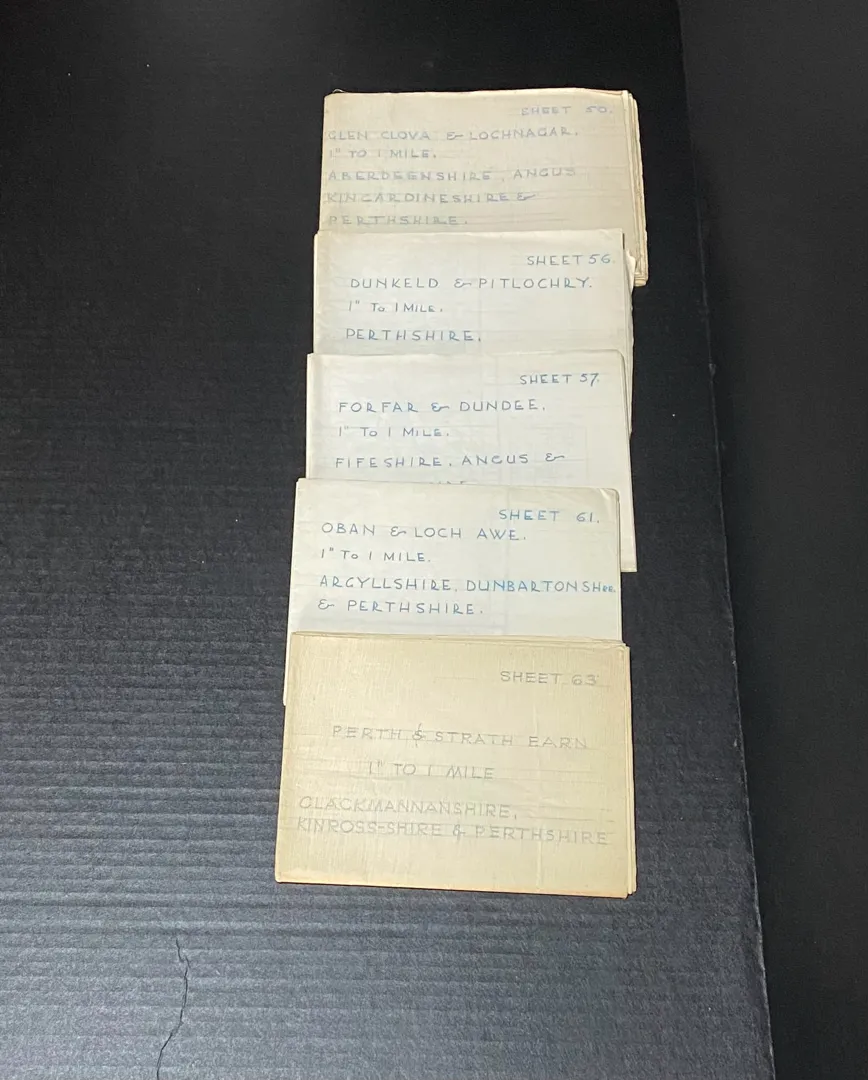 SHEET 50.
GLEN CLOVA & LOCHNAGAR.
1" TO 1 MILE.
ABERDEENSHIRE, ANGUS,
KINCARDINESHIRE &
PERTHSHIRE.
SHEET 56.
DUNKELD & PITLOCHRY.
1" To 1 MILE.
PERTHSHIRE.
SHEET 57.
FORFAR & DUNDEE.
1" To 1 MILE.
FIFESHIRE, ANGUS &
SHEET 61.
OBAN & LOCH AWE.
1" To 1 MILE.
ARGYLLSHIRE, DUNBARTONSHIRE.
& PERTHSHIRE.
SHEET 63
PERTH & STRATH EARN
1" TO 1 MILE
CLACKMANNANSHIRE,
KINROSS-SHIRE & PERTHSHIRE